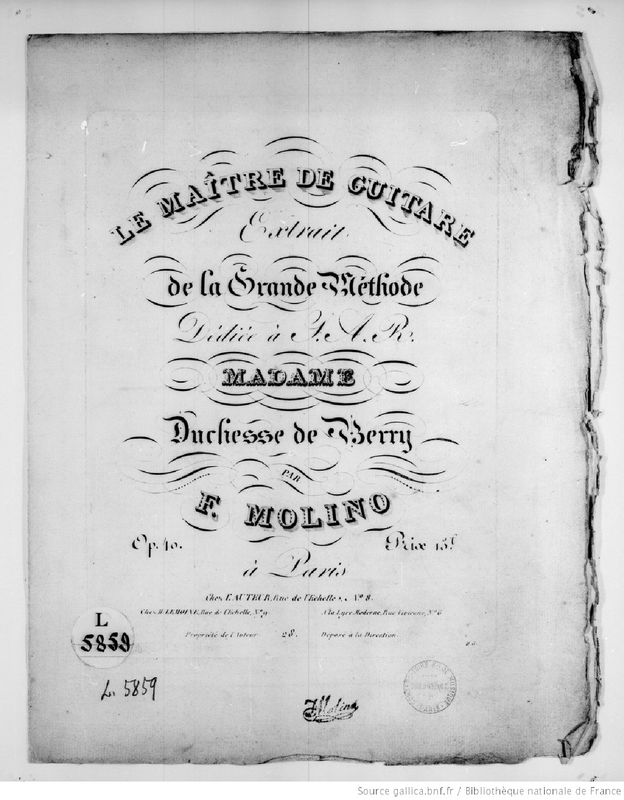 LE MAÎTRE DE GUITARE
Extrait
de la Grande Méthode
Dédiée à S. A. R.
MADAME
Duchesse de Berry
PAR
F. MOLINO
Op. 40. Prix 15f
à Paris
Chez L'AUTEUR, Rue de l'Echelle, No 8.
Chez H. LEMOINE, Rue de l'Echelle, No 9. A la Lyre Moderne, Rue Vivienne, No 6
Propriété de l'Auteur 28. Déposé à la Direction.
L
5859
L. 5859
FMolino
Source gallica.bnf.fr / Bibliothèque nationale de France